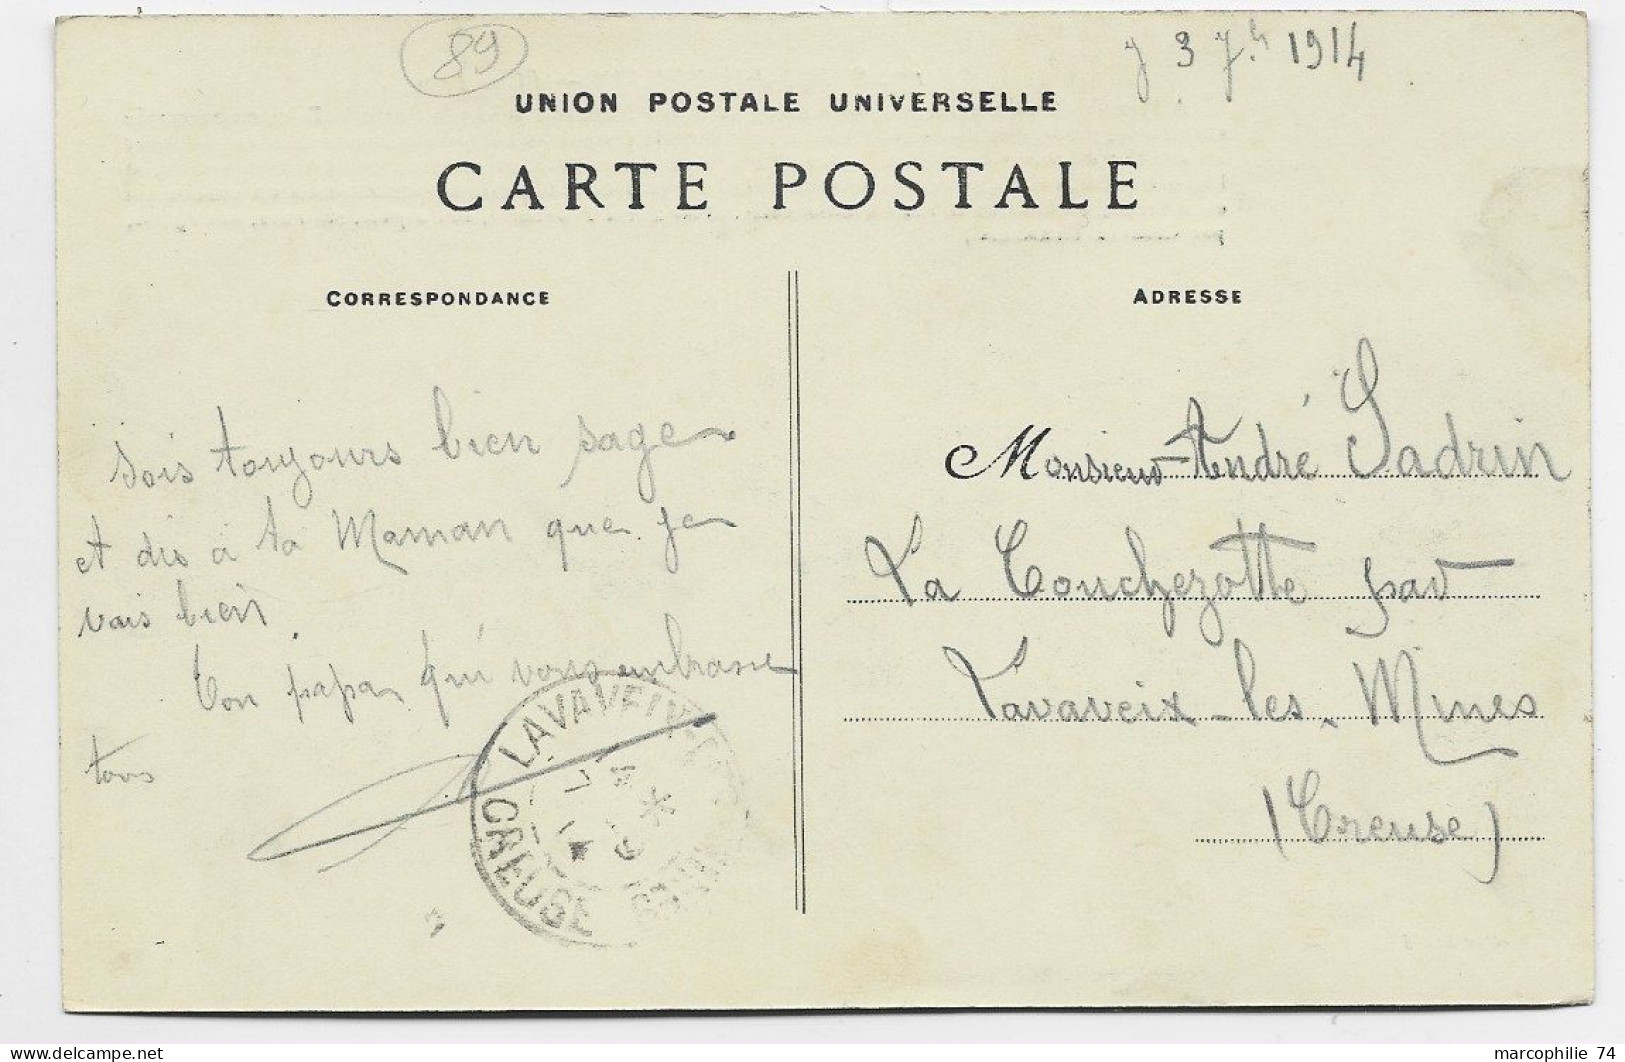 89
J 3 7bre 1914
UNION POSTALE UNIVERSELLE
CARTE POSTALE
CORRESPONDANCE
ADRESSE
Sois toujours bien sage
et dis à ta Maman que je
vais bien.
Ton papa qui vous embrasse
tous
Monsieur André Sadrin
La Couchezotte par
Lavaveix-les-Mines
(Creuse)
LAVAVEIX-LES-MINES
CREUSE
marcophilie 74